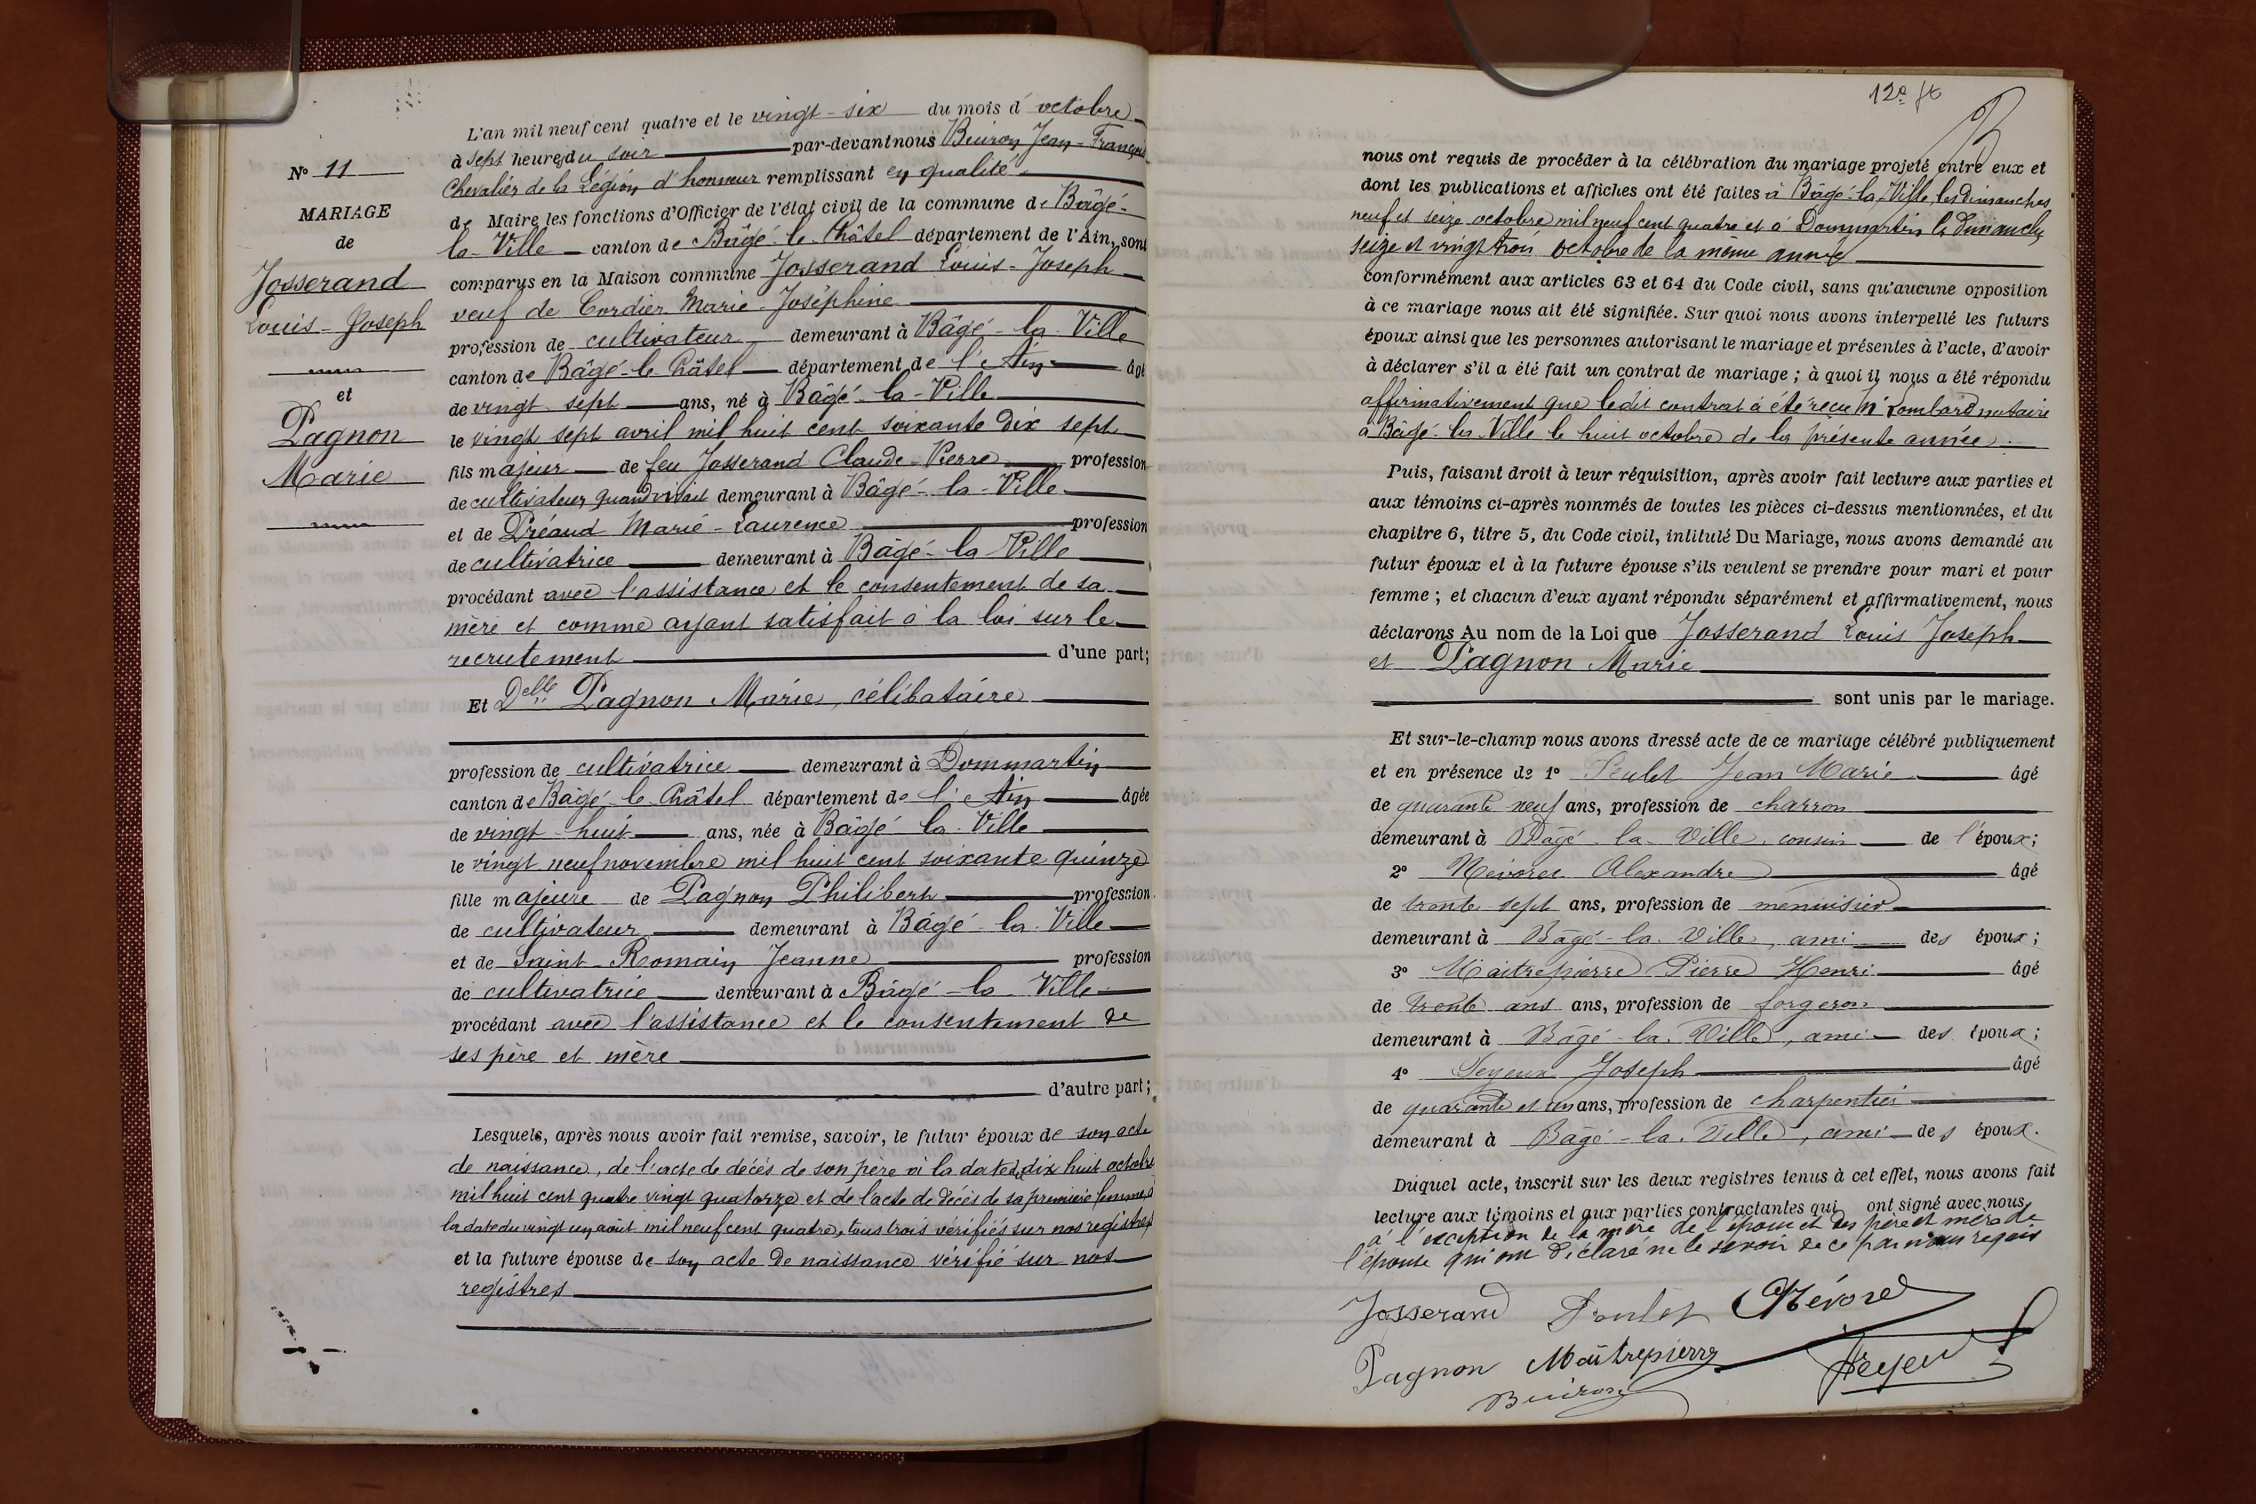 N° 11
MARIAGE
de
Josserand
Louis-Joseph
et
Pagnon
Marie
L'an mil neuf cent quatre et le vingt-six du mois d'octobre
à sept heures du soir par-devant nous Buiron Jean-François
Chevalier de la Légion d'honneur remplissant en qualité
de Maire les fonctions d'Officier de l'état civil de la commune de Bâgé-
la-Ville canton de Bâgé-le-Châtel département de l'Ain, sont
comparus en la Maison commune Josserand Louis-Joseph
veuf de Cordier Marie-Joséphine
profession de cultivateur demeurant à Bâgé-la-Ville
canton de Bâgé-le-Châtel département de l'Ain âgé
de vingt-sept ans, né à Bâgé-la-Ville
le vingt sept avril mil huit cent soixante dix sept
fils majeur de feu Josserand Claude-Pierre profession
de cultivateur, quand vivait demeurant à Bâgé-la-Ville
et de Préaud Marie-Laurence profession
de cultivatrice demeurant à Bâgé-la-Ville
procédant avec l'assistance et le consentement de sa
mère et comme ayant satisfait à la loi sur le
recrutement d'une part;
Et Delle Pagnon Marie, célibataire
profession de cultivatrice demeurant à Dommartin
canton de Bâgé-le-Châtel département de l'Ain âgée
de vingt-huit ans, née à Bâgé-la-Ville
le vingt neuf novembre mil huit cent soixante quinze
fille majeure de Pagnon Philibert profession
de cultivateur demeurant à Bâgé-la-Ville
et de Saint-Romain Jeanne profession
de cultivatrice demeurant à Bâgé-la-Ville
procédant avec l'assistance et le consentement de
ses père et mère
d'autre part;
Lesquels, après nous avoir fait remise, savoir, le futur époux de son acte
de naissance, de l'acte de décès de son père à la date du dix huit octobre
mil huit cent quatre vingt quatorze et de l'acte de décès de sa première femme à
la date du vingt un août mil neuf cent quatre, tous trois vérifiés sur nos registres
et la future épouse de son acte de naissance vérifié sur nos
registres
12e ft
nous ont requis de procéder à la célébration du mariage projeté entre eux et
dont les publications et affiches ont été faites à Bâgé-la-Ville, les dimanches
neuf et seize octobre mil neuf cent quatre et à Dommartin les dimanches
seize et vingt trois octobre de la même année
conformément aux articles 63 et 64 du Code civil, sans qu'aucune opposition
à ce mariage nous ait été signifiée. Sur quoi nous avons interpellé les futurs
époux ainsi que les personnes autorisant le mariage et présentes à l'acte, d'avoir
à déclarer s'il a été fait un contrat de mariage; à quoi il nous a été répondu
affirmativement que ledit contrat a été reçu Me Lombard notaire
à Bâgé-la-Ville le huit octobre de la présente année.
Puis, faisant droit à leur réquisition, après avoir fait lecture aux parties et
aux témoins ci-après nommés de toutes les pièces ci-dessus mentionnées, et du
chapitre 6, titre 5, du Code civil, intitulé Du Mariage, nous avons demandé au
futur époux et à la future épouse s'ils veulent se prendre pour mari et pour
femme; et chacun d'eux ayant répondu séparément et affirmativement, nous
déclarons Au nom de la Loi que Josserand Louis Joseph
et Pagnon Marie
sont unis par le mariage.
Et sur-le-champ nous avons dressé acte de ce mariage célébré publiquement
et en présence de 1° Jean Marie âgé
de quarante neuf ans, profession de charron
demeurant à Bâgé-la-Ville, cousin de l'époux;
2° Névoret Alexandre âgé
de trente sept ans, profession de menuisier
demeurant à Bâgé-la-Ville, ami des époux;
3° Maitrepierre Pierre Henri âgé
de trente ans ans, profession de forgeron
demeurant à Bâgé-la-Ville, ami des époux;
4° Joseph âgé
de quarante et un ans, profession de charpentier
demeurant à Bâgé-la-Ville, ami des époux.
Duquel acte, inscrit sur les deux registres tenus à cet effet, nous avons fait
lecture aux témoins et aux parties contractantes qui ont signé avec nous
à l'exception de la mère de l'époux et des père et mère de
l'épouse qui ont déclaré ne le savoir de ce par nous requis
Josserand Névoret
Pagnon Maîtrepierre
Buiron